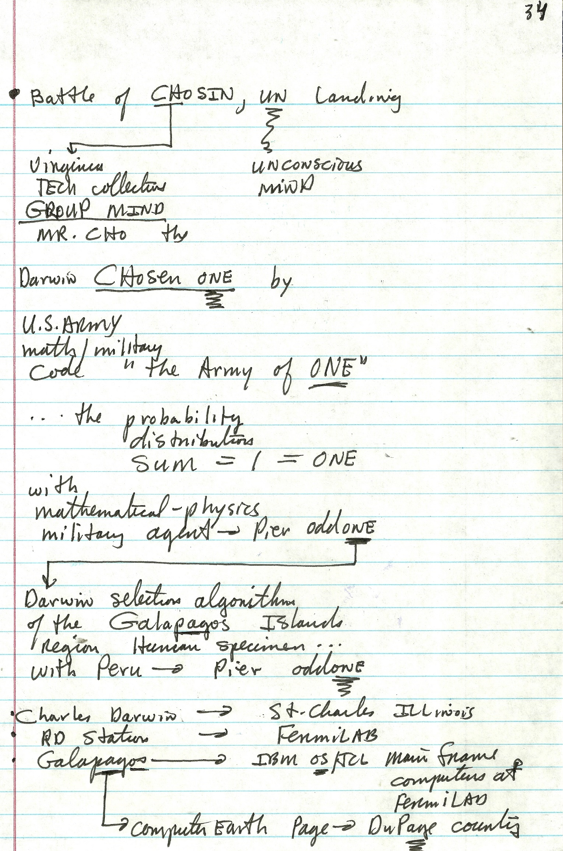 34
• Battle of CHOSIN, UN Landing
Virginia UNCONSCIOUS
TECH collective MIND
GROUP MIND
MR. CHO the
Darwin CHosen ONE by
U.S. ARMY
math/military
Code "the Army of ONE"
... the probability
distribution
SUM = 1 = ONE
with
mathematical-physics
military agent → Pier oddONE
Darwin selection algorithm
of the Galapagos Islands
region Human specimen...
with Peru → Pier oddONE
• Charles Darwin → St. Charles ILLinois
• RD Station → FermiLAB
• Galapagos → IBM OS/JCL main frame
computers at
FermiLAB
Computer Earth Page → DuPage county